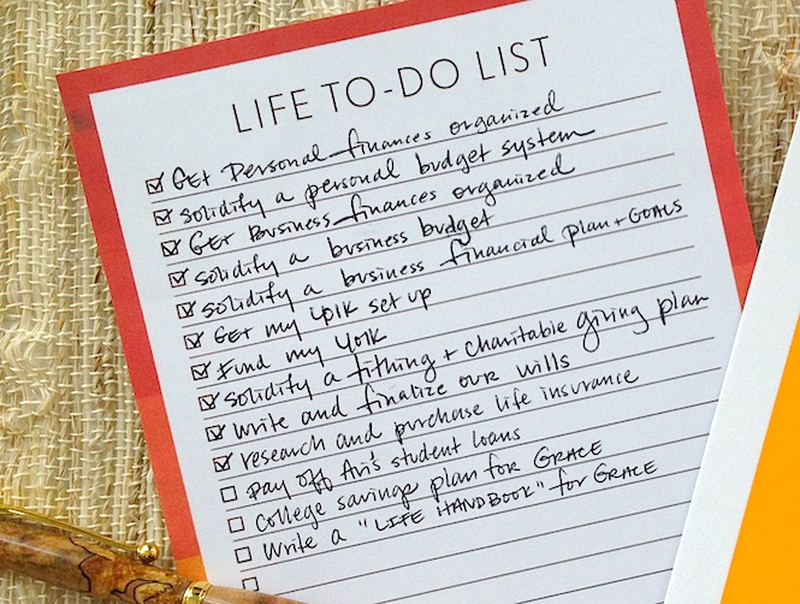 LIFE TO-DO LIST
GET Personal finances organized
solidify a personal budget system
GET Business finances organized
solidify a business budget
solidify a business financial plan + GOALS
GET my 401K set up
Fund my 401K
solidify a tithing + charitable giving plan
write and finalize our wills
research and purchase life insurance
pay off Ari's student loans
college savings plan for GRACE
Write a "LIFE HANDBOOK" for GRACE